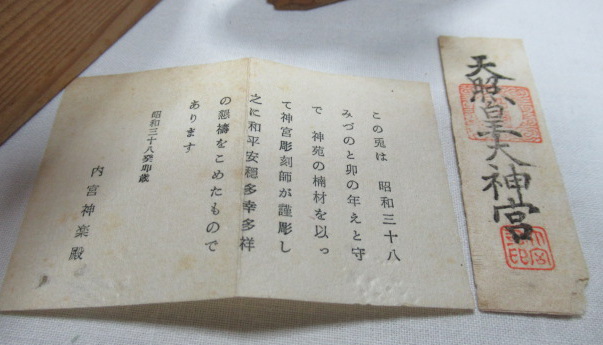 天照皇大神宮
この兎は　昭和三十八
みづのと卯の年えと守
で　神苑の楠材を以っ
て神宮彫刻師が謹彫し
之に和平安穏多幸多祥
の懇禱をこめたもので
あります
昭和三十八癸卯歳
内宮神楽殿